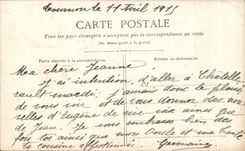 Tournon le 11 Avril 1915
CARTE POSTALE
Tous les pays étrangers n'acceptent pas la correspondance au recto
(Se renseigner à la poste)
Partie réservée à la correspondance
Adresse du destinataire
Ma chère Jeanne
J'ai intention d'aller à Chatelle
rault mardi, j'aurai donc le plaisir
de vous voir et de vous donner des nou
velles d'Eugène de vive voix ainsi que
de Jean. Je vous embrasse bien de
ainsi que mon Oncle et ma Tante
ta cousine affectionnée
Germaine